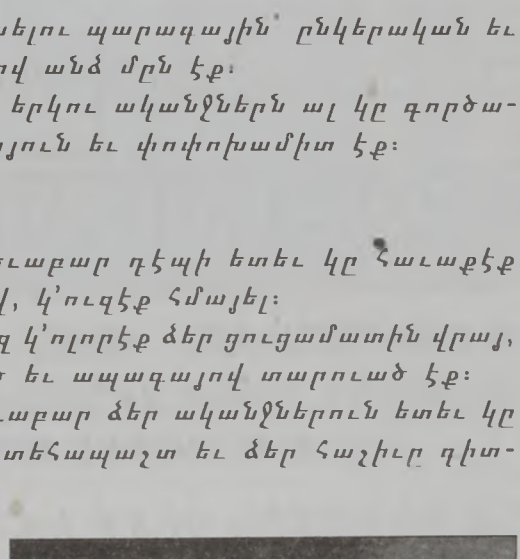 պարագային՝ ընկերական եւ
անձ մըն էք։
երկու ականջներն ալ կը գործա-
եւ փոփոխամիտ էք։
դէպի ետեւ կը հաւաքէք
կ՚ուզէք հմայել։
կ՚ոլորէք ձեր ցուցամատին վրայ,
եւ ապագայով տարուած էք։
ձեր ականջներուն ետեւ կը
եւ ձեր հաշիւը գիտ-